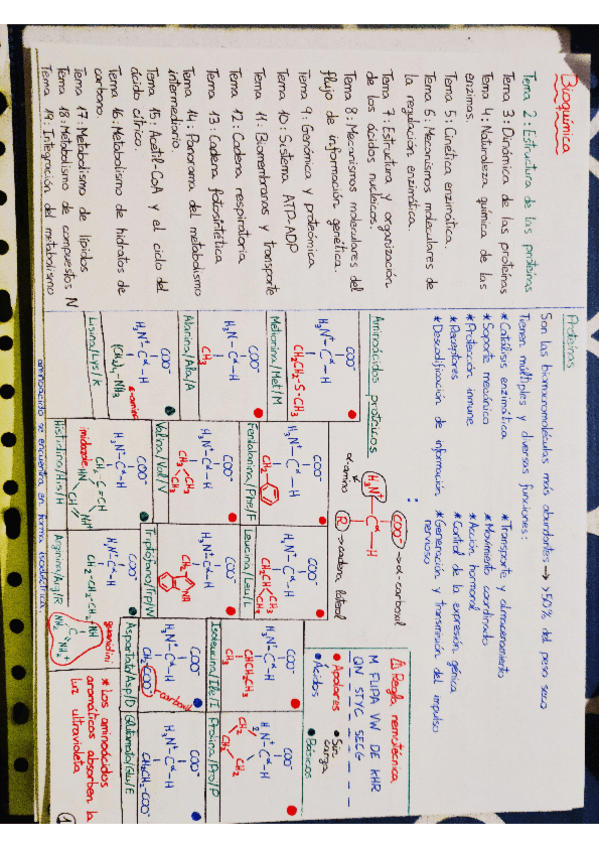 Bioquímica
Tema 2: Estructura de las proteínas
Tema 3: Dinámica de las proteínas
Tema 4: Naturaleza química de las
enzimas.
Tema 5: Cinética enzimática.
Tema 6: Mecanismos moleculares de
la regulación enzimática.
Tema 7: Estructura y organización
de los ácidos nucleicos.
Tema 8: Mecanismos moleculares del
flujo de información genética.
Tema 9: Genómica y proteómica
Tema 10: Sistema ATP-ADP
Tema 11: Biomembranas y transporte
Tema 12: Cadena respiratoria
Tema 13: Cadena fotosintética
Tema 14: Panorama del metabolismo
intermediario.
Tema 15: Acetil-CoA y el ciclo del
ácido cítrico.
Tema 16: Metabolismo de hidratos de
carbono.
Tema 17: Metabolismo de lípidos
Tema 18: Metabolismo de compuestos N
Tema 19: Integración del metabolismo
Proteínas
Son las biomacromoléculas más abundantes → >50% del peso seco
Tienen múltiples y diversas funciones:
* Catálisis enzimática
* Soporte mecánico
* Protección inmune
* Receptores
* Descodificación de información
* Transporte y almacenamiento
* Movimiento coordinado
* Acción hormonal
* Control de la expresión génica
* Generación y transmisión del impulso
nervioso
Aminoácidos proteicos:
COO⁻ → α-carboxil
H₃N⁺—Cα—H
α-amino
R → cadena lateral
⚠ Regla nemotécnica
M FLIPA VW DE KHR
QN STYC SECG
● Apolares
● Sin
carga
● Ácidos
● Básicos
COO⁻
H₃N⁺—Cα—H
CH₂CH₂-S-CH₃
Metionina/Met/M
COO⁻
H₃N⁺—Cα—H
CH₂
Fenilalanina/Phe/F
COO⁻
H₃N⁺—Cα—H
CH₂CHCH₃
CH₃
Leucina/Leu/L
COO⁻
H₃N⁺—Cα—H
CHCH₂CH₃
CH₃
Isoleucina/Ile/I
COO⁻
H₂N⁺—Cα—H
CH₂ CH₂
CH₂
Prolina/Pro/P
COO⁻
H₃N⁺—Cα—H
CH₃
Alanina/Ala/A
COO⁻
H₃N⁺—Cα—H
CH-CH₃
CH₃
Valina/Val/V
COO⁻
H₃N⁺—Cα—H
CH₂
NH
Triptófano/Trp/W
COO⁻
H₃N⁺—Cα—H
CH₂COO⁻ → carboxil
Aspartato/Asp/D
COO⁻
H₃N⁺—Cα—H
CH₂CH₂-COO⁻
Glutamato/Glu/E
COO⁻
H₃N⁺—Cα—H
(CH₂)₄-NH₃
ε-amino
Lisina/Lys/K
COO⁻
H₃N⁺—Cα—H
CH₂-C=CH
imidazole HN NH⁺
CH
Histidina/His/H
COO⁻
H₃N⁺—Cα—H
CH₂-CH₂-CH₂-NH
C
NH₂ NH₂⁺
guanidini
Arginina/Arg/R
* Los aminoácidos
aromáticos absorben la
luz ultravioleta
aminoácido se encuentra en forma isoeléctrica.
1